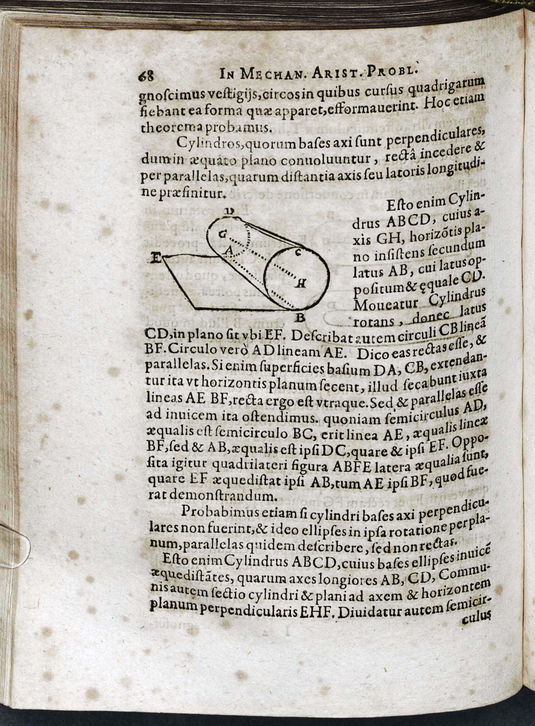 68 IN MECHAN. ARIST. PROBL.
gnoſcimus veſtigijs, circos in quibus curſus quadrigarum
fiebant ea forma quæ apparet, efformauerint. Hoc etiam
theorema probamus.
Cylindros, quorum baſes axi ſunt perpendiculares,
dum in æquato plano conuoluuntur, rectâ incedere &
per parallelas, quarum diſtantia axis ſeu latoris longitudi-
ne præfinitur.
Eſto enim Cylin-
drus ABCD, cuius a-
xis GH, horizõtis pla-
no inſiſtens ſecundum
latus AB, cui latus op-
poſitum & ęquale CD.
Moueatur Cylindrus
rotans, donec latus
D
G
A
C
E
H
B
CD, in plano ſit vbi EF. Deſcribat autem circuli CB lineã
BF. Circulo verò AD lineam AE. Dico eas rectas eſſe, &
parallelas. Si enim ſuperficies baſium DA, CB, extendan-
tur ita vt horizontis planum ſecent, illud ſecabunt iuxta
lineas AE BF, recta ergo eſt vtraque. Sed & parallelas eſſe
ad inuicem ita oſtendimus. quoniam ſemicirculus AD,
æqualis eſt ſemicirculo BC, erit linea AE, æqualis lineæ
BF, ſed & AB, æqualis eſt ipſi DC, quare & ipſi EF. Oppo-
ſita igitur quadrilateri figura ABFE latera æqualia ſunt,
quare EF æquediſtat ipſi AB, tum AE ipſi BF, quod fue-
rat demonſtrandum.
Probabimus etiam ſi cylindri baſes axi perpendicu-
lares non fuerint, & ideo ellipſes in ipſa rotatione per pla-
num, parallelas quidem deſcribere, ſed non rectas.
Eſto enim Cylindrus ABCD, cuius baſes ellipſes inuicẽ
æquediſtãtes, quarum axes longiores AB, CD, Commu-
nis autem ſectio cylindri & plani ad axem & horizontem
planum perpendicularis EHF. Diuidatur autem ſemicir-
culus